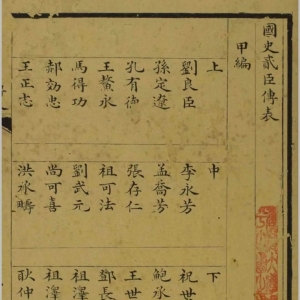 國史貳臣傳表
甲編
上
劉良臣
孫定遼
孔有德
王鰲永
馬得功
郝效忠
王正志
中
李永芳
孟喬芳
張存仁
祖可法
劉武元
尚可喜
洪承疇
下
祝世
鮑承
王世
鄧長
祖澤
祖澤
耿仲